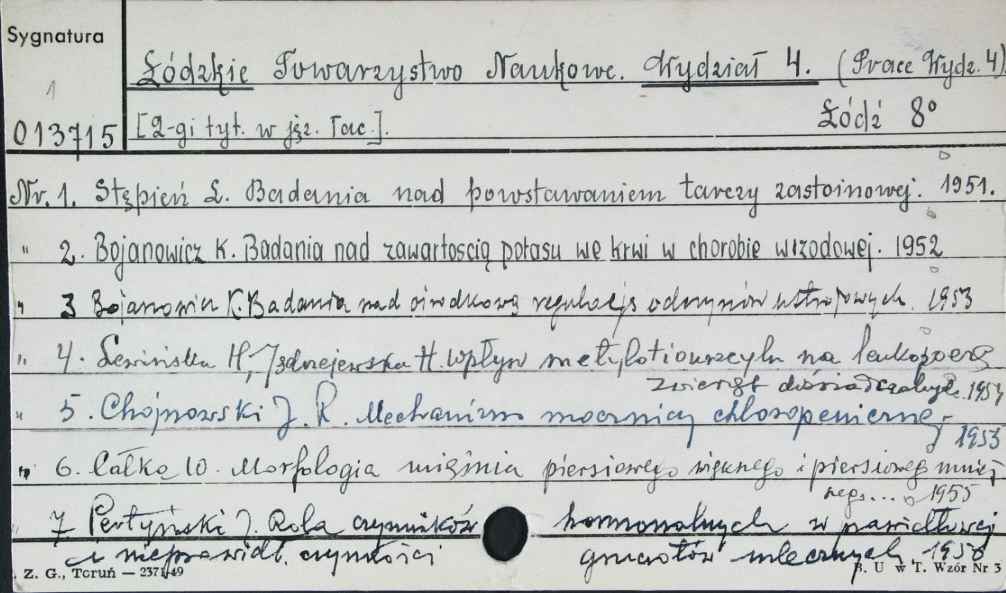 Sygnatura
1
013715
Łódzkie Towarzystwo Naukowe. Wydział 4. (Prace Wydz. 4)
Łódź 8°
[2-gi tyt. w jęz. łac.].
Nr. 1. Stępień L. Badania nad powstawaniem tarczy zastoinowej. 1951.
" 2. Bojanowicz K. Badania nad zawartoscią potasu we krwi w chorobie wrzodowej. 1952
" 3 Bojanowicz K. Badania nad ośrodkową regulacją odczynów ustrojowych. 1953
" 4. Lewińska H., Jędrzejewska H. Wpływ metylotiouracylu na leukopoezę
zwierząt doświadczalnych. 1954
" 5. Chojnowski J. R. Mechanizm mocznicy chloropenicznej
1953
" 6. Całka W. Morfologia mięśnia piersiowego większego i piersiowego mniej
szego... 1955
" 7 Pertyński J. Rola czynników hormonalnych w prawidłowej
i nieprawidł. czynności gruczołów mlecznych 1956
Z. G., Toruń — 2371/49
B. U w T. Wzór Nr 3